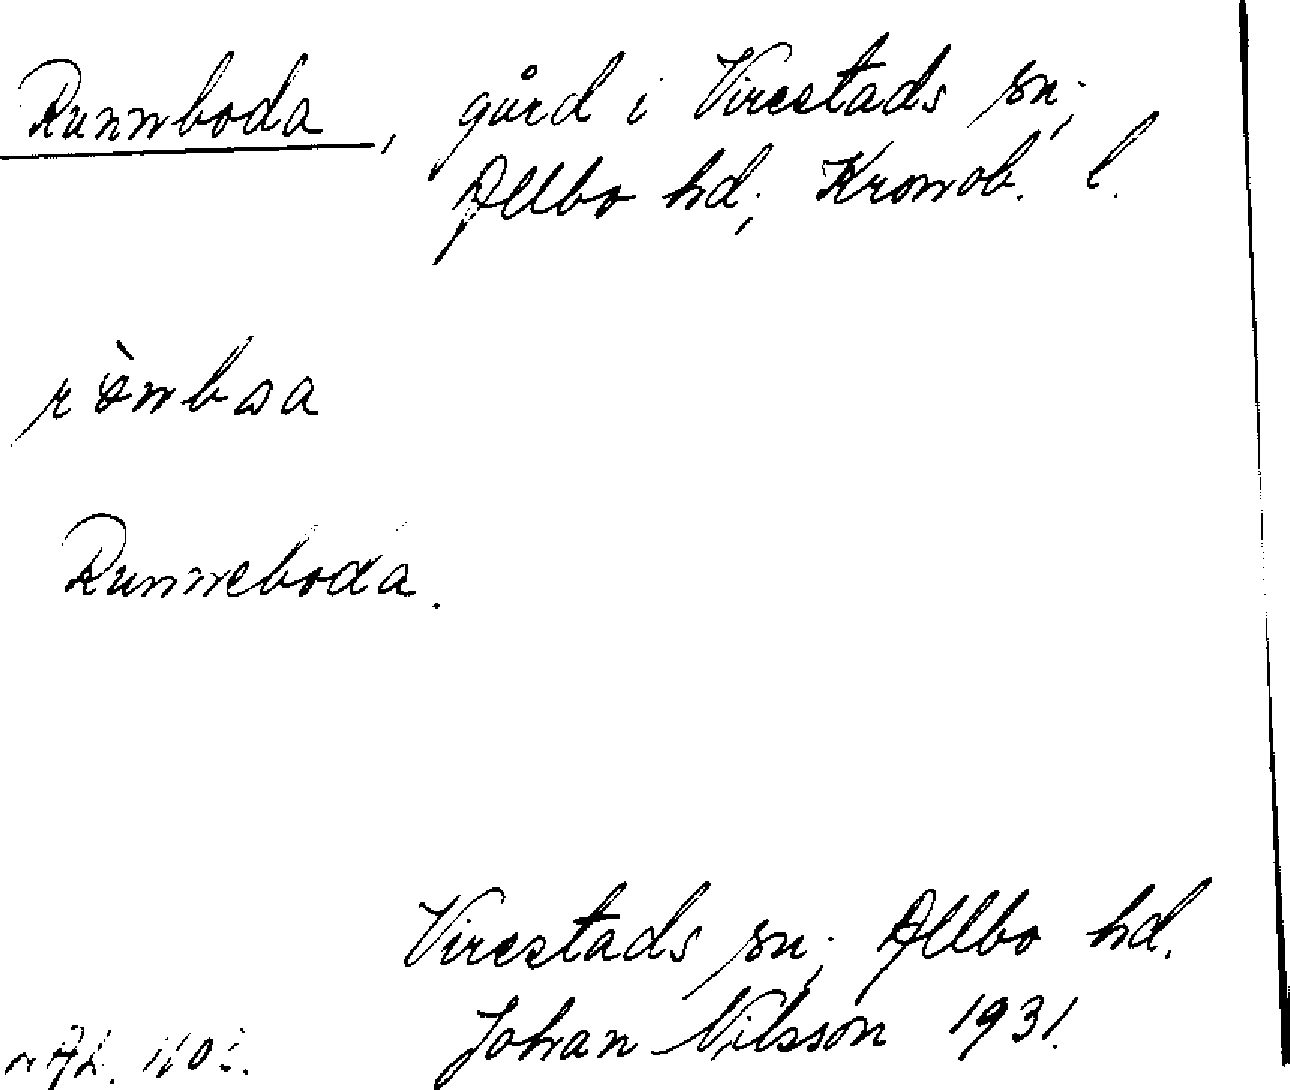 Runnboda, gård i Virestads sn;
Allbo hd; Kronob. l.
Runneboda.
Virestads sn; Allbo hd.
Johan Nilsson 1931.